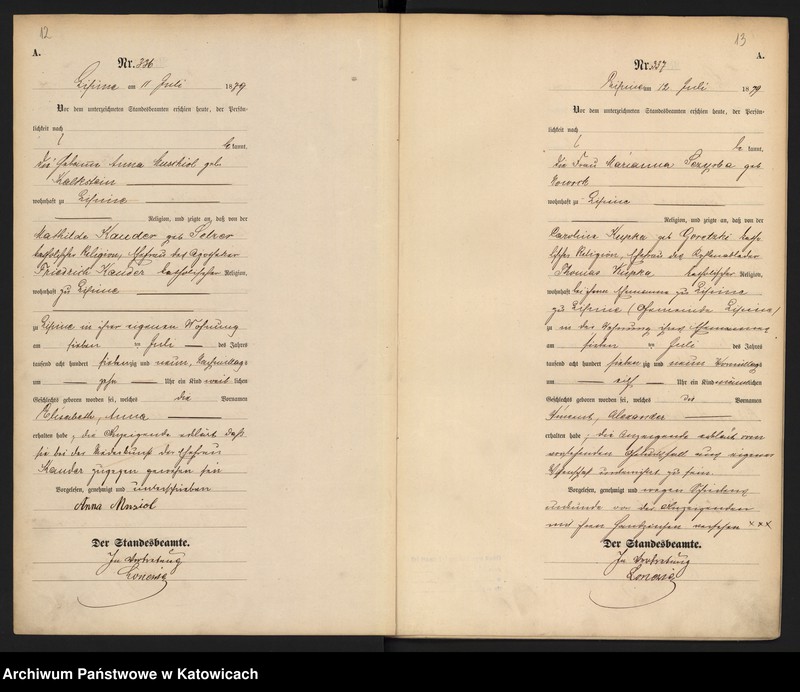 12
A.
Nr. 336
Lipine am 11 Juli 1879
Vor dem unterzeichneten Standesbeamten erschien heute, der Persön-
lichkeit nach
be kannt,
die Hebamme Anna Musiol geb.
Kalkstein
wohnhaft zu Lipine
Religion, und zeigte an, daß von der
Mathilde Kauder geb Selzer
katholischer Religion, Ehefrau des Apotheker
Friedrich Kauder katholischer Religion,
wohnhaft zu Lipine
zu Lipine in ihrer eigenen Wohnung
am sieben ten Juli des Jahres
tausend acht hundert siebenzig und neun, Nachmittags
um zehn Uhr ein Kind weib lichen
Geschlechts geboren worden sei, welches die Vornamen
Elisabeth, Anna
erhalten habe, die Anzeigende erklärt daß
sie bei der Niederkunft der Ehefrau
Kauder zugegen gewesen sei
Vorgelesen, genehmigt und unterschrieben
Anna Musiol
Der Standesbeamte.
In Vertretung
13
A.
Nr. 337
Lipine am 12 Juli 1879
Vor dem unterzeichneten Standesbeamten erschien heute, der Persön-
lichkeit nach
be kannt,
die Frau Marianna geb
Nowork
wohnhaft zu Lipine
Religion, und zeigte an, daß von der
Carolina Kupka geb Gorotzki katho
lischer Religion, Ehefrau des
Thomas Kupka katholischer Religion,
wohnhaft bei ihrem Ehemanne zu Lipine
zu Lipine (Gemeinde Lipine)
zu in der Wohnung ihres Ehemannes
am sieben ten Juli des Jahres
tausend acht hundert sieben zig und neun Vormittags
um elf Uhr ein Kind männlichen
Geschlechts geboren worden sei, welches die Vornamen
Vincent, Alexander
erhalten habe, die Anzeigende erklärt vom
vorstehenden Geburtsfall aus eigener
Wissenschaft unterrichtet zu sein.
Vorgelesen, genehmigt und wegen Schreibens
unkunde von der Anzeigenden
mit ihren Handzeichen versehen xxx
Der Standesbeamte.
In Vertretung
Archiwum Państwowe w Katowicach